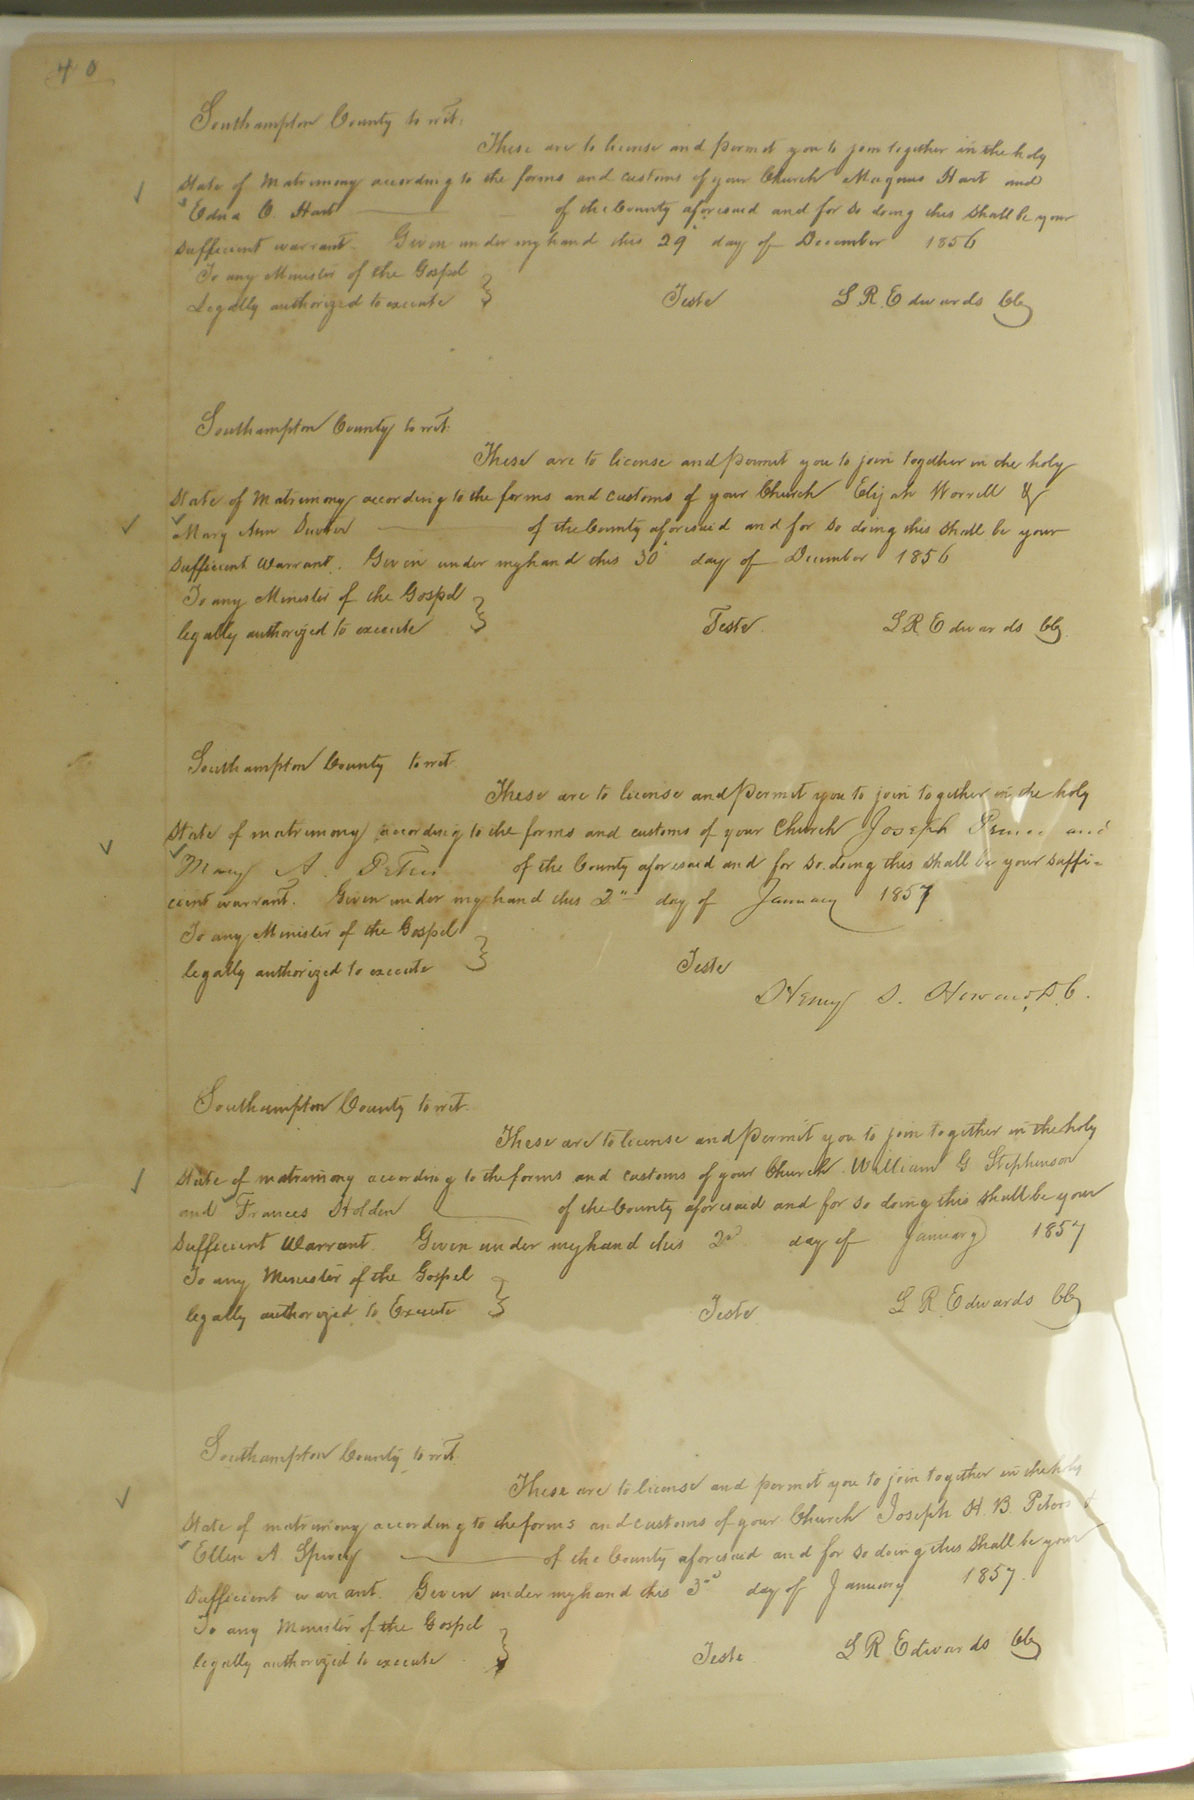 40
Southampton County to wit:
These are to license and permit you to join together in the holy
State of Matrimony according to the forms and customs of your Church Magnus Hart and
Edna O. Hart of the County aforesaid and for so doing this shall be your
sufficient warrant. Given under my hand this 29 day of December 1856
To any Minister of the Gospel
Legally authorized to execute Teste L R Edwards Clk
Southampton County to wit:
These are to license and permit you to join together in the holy
State of Matrimony according to the forms and customs of your Church Elijah Worrell &
Mary Ann of the County aforesaid and for so doing this shall be your
sufficient Warrant. Given under my hand this 30 day of December 1856
To any Minister of the Gospel
legally authorized to execute Teste. L R Edwards Clk
Southampton County to wit
These are to license and permit you to join together in the holy
State of matrimony according to the forms and customs of your Church Joseph and
Mary A. of the County aforesaid and for so doing this shall be your suffi=
cient warrant. Given under my hand this 2" day of January 1857
To any Minister of the Gospel
legally authorized to execute Teste
Henry S. Howard, D. C.
Southampton County to wit.
These are to license and permit you to join together in the holy
State of matrimony according to the forms and customs of your Church William G Stephenson
and Frances Holden of the County aforesaid and for so doing this shall be your
sufficient Warrant. Given under my hand this 2d day of January 1857
To any Minister of the Gospel
legally authorized to Execute Teste L R Edwards Clk
Southampton County to wit.
These are to license and permit you to join together in the holy
State of matrimony according to the forms and customs of your Church Joseph H. B. Peters &
Ellen A. Spivey of the County aforesaid and for so doing this shall be your
sufficient warrant. Given under my hand this 3rd day of January 1857.
To any Minister of the Gospel
legally authorized to execute Teste L R Edwards Clk